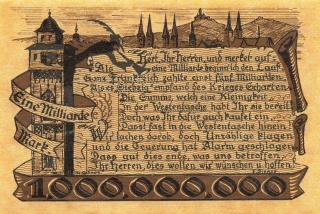 Hört, Ihr Herren, und merket auf:
Als eine Milliarde beginn ich den Lauf.
Ganz Frankreich zahlte einst fünf Milliarden,
Als es Siebzig empfand des Krieges Scharten.
Die Summe, welch eine Kleinigkeit,
In der Westentasche habt Ihr sie bereit!
Doch was Ihr dafür auch kaufet ein,
Das fast in die Westentasche hinein.
Wir lachen darob, doch Unzählige klagen
und die Teuerung hat Alarm geschlagen
Dass gut dies ende, was uns betroffen,
Ihr Herren, dies wollen wir wünschen u. hoffen.
Eine Milliarde
Mark
1000000000